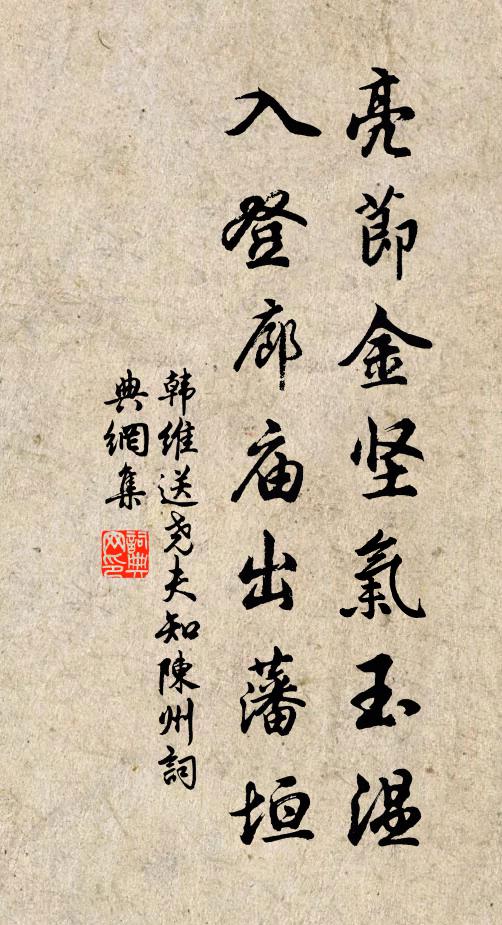 亮節金坚氣玉温
入登廊庙出藩垣
韩維送尧夫知陳州詞
典網集
詞典网印